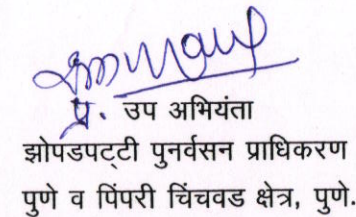 प्र. उप अभियंता
झोपडपट्टी पुनर्वसन प्राधिकरण
पुणे व पिंपरी चिंचवड क्षेत्र, पुणे.